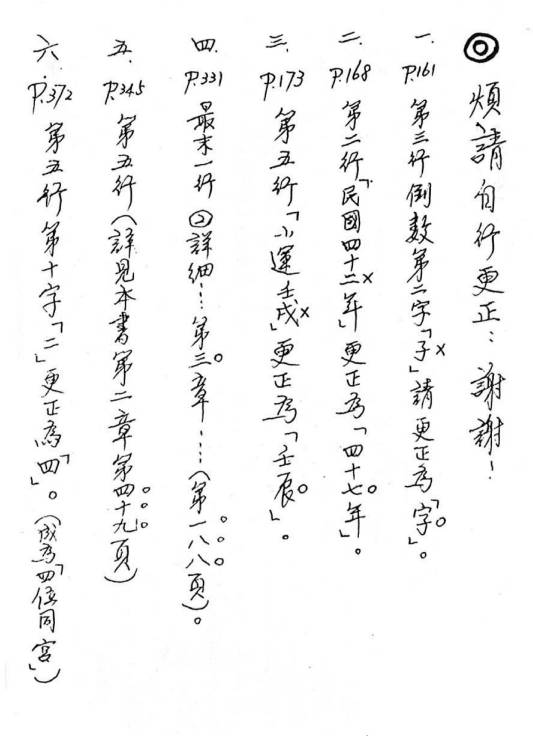 ◎ 煩請自行更正：謝謝！
一. P.161 第三行倒數第二字「子」請更正為「字」。
二. P.168 第二行「民國四十二年」更正為「四十七年」。
三. P.173 第五行「小運壬戌」更正為「壬辰」。
四. P.331 最末一行②詳細…第三章……(第一八八頁)。
五. P.345 第五行(詳見本書第二章第四十九頁)
六. P.372 第五行第十字「二」更正為「四」。(成為「四位同宮」)